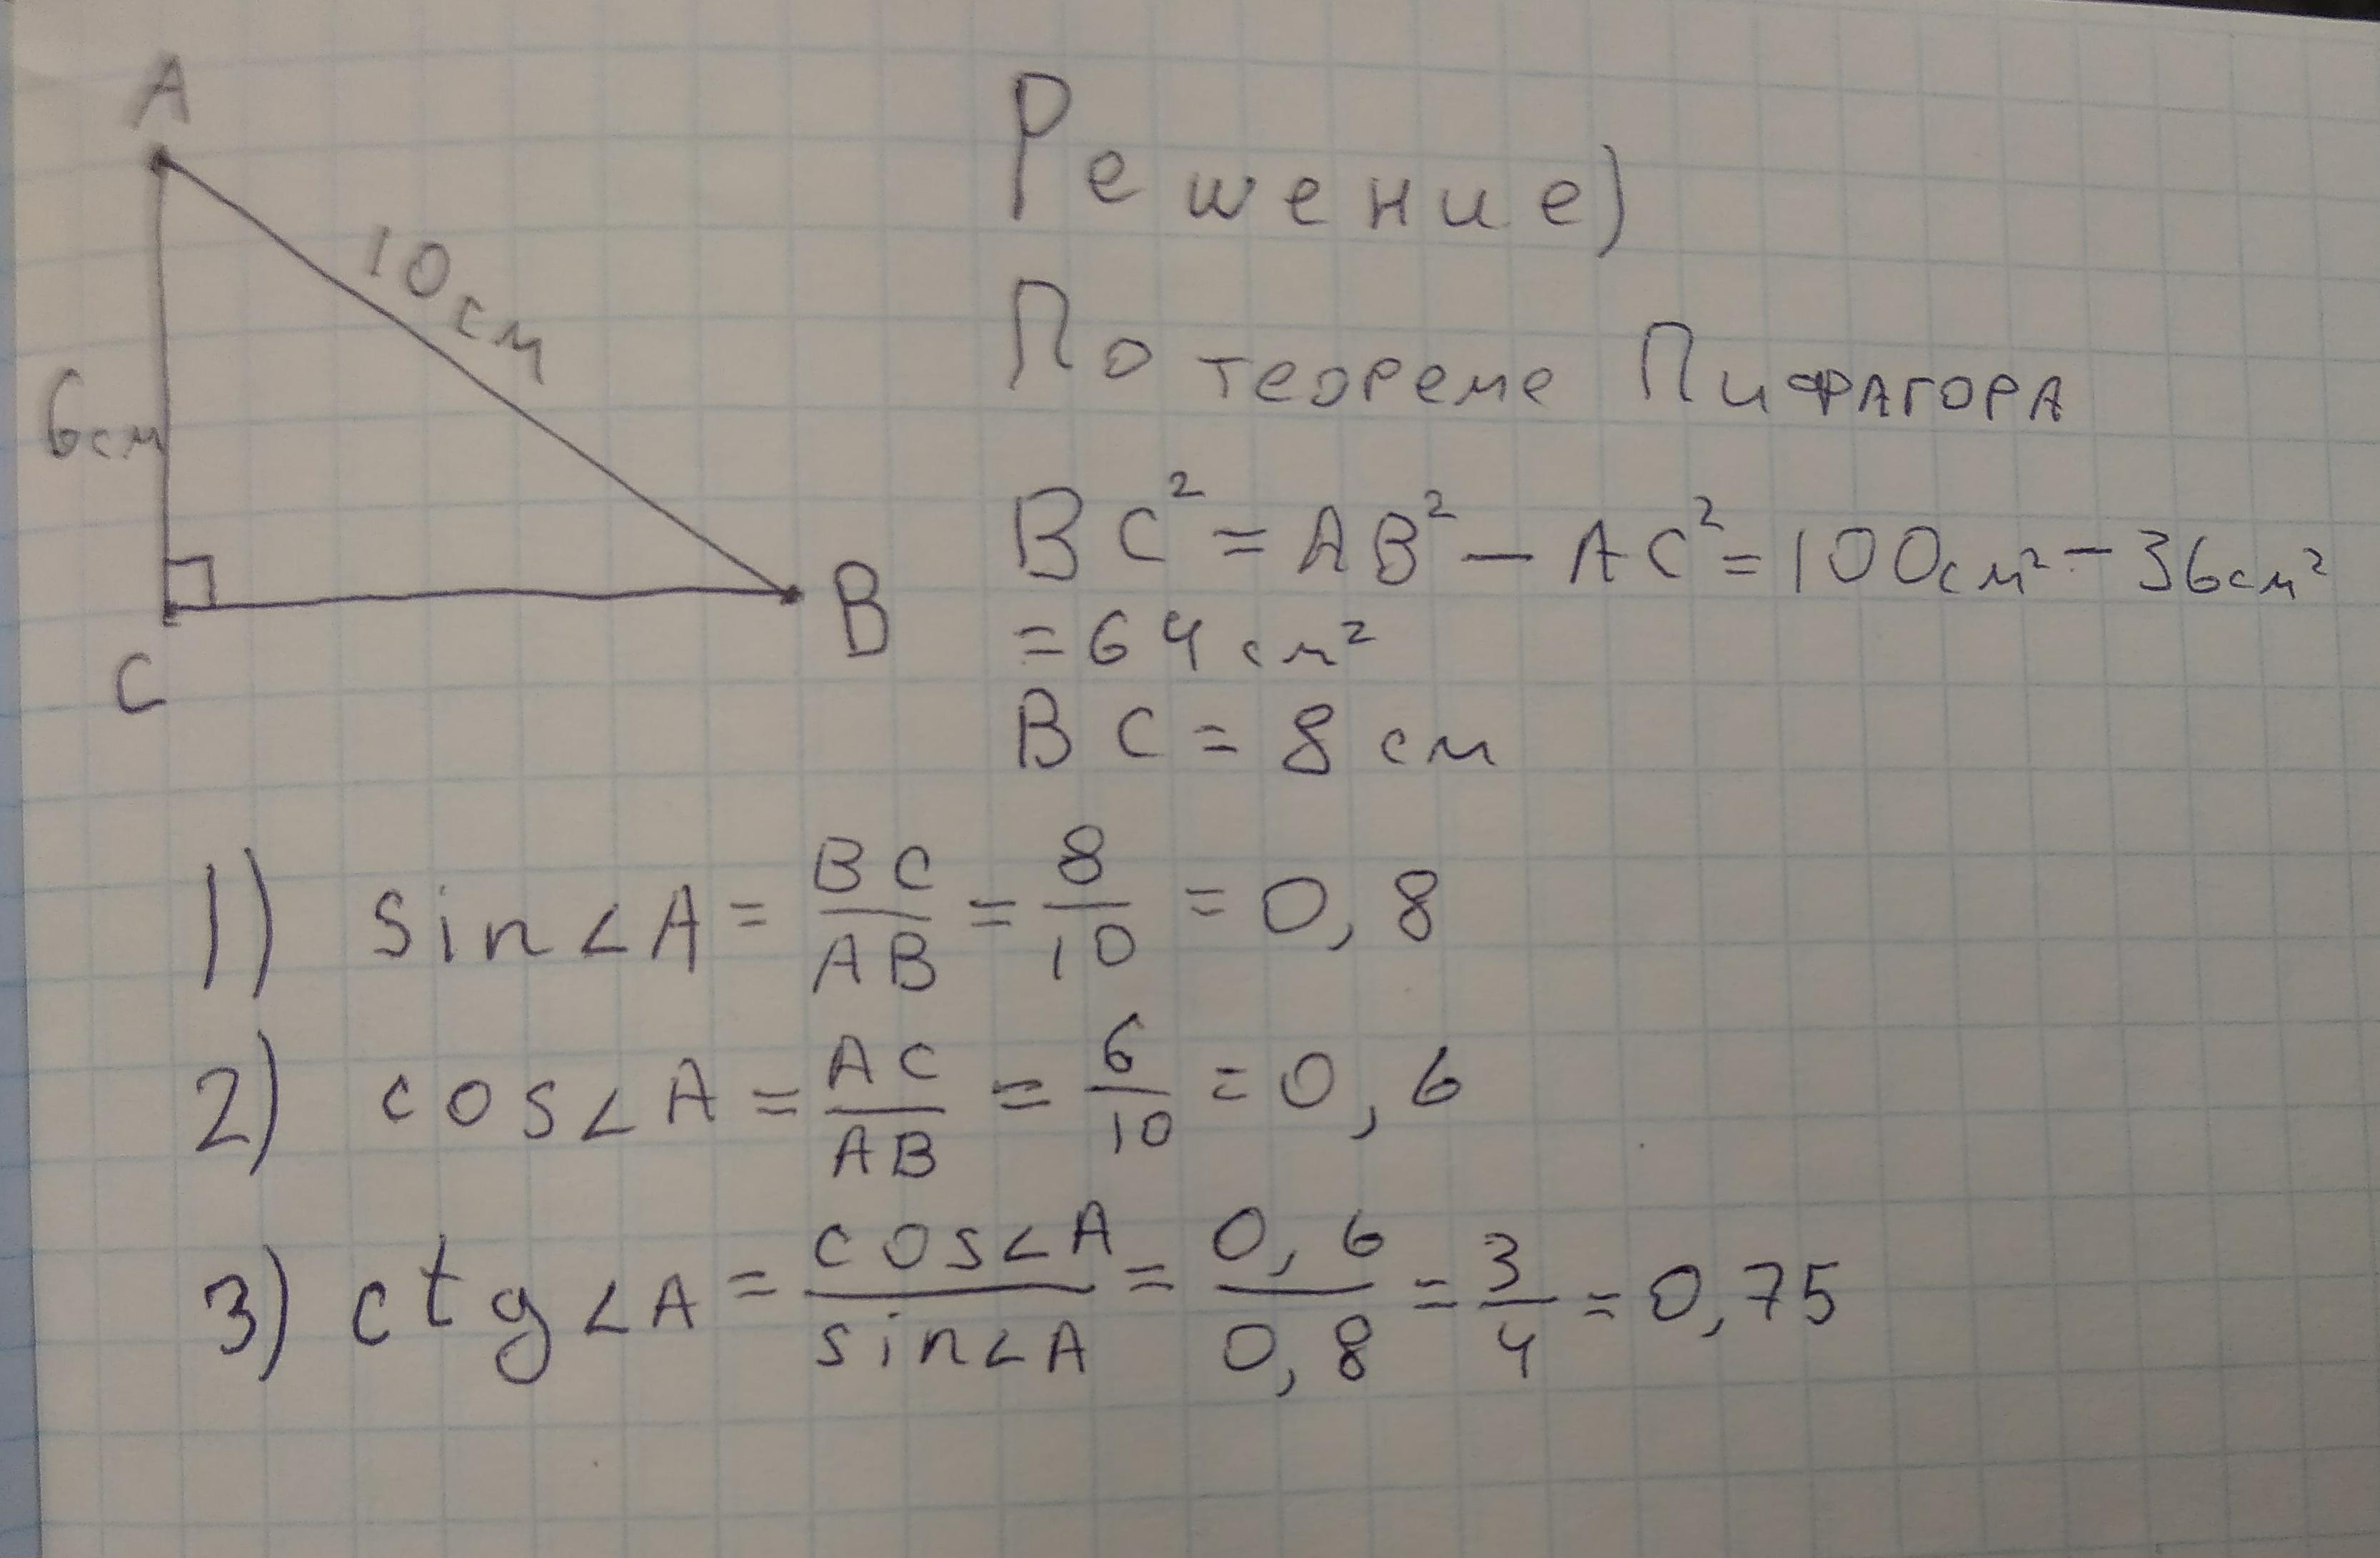 A
10 см
6см
C
B
Решение)
По теореме Пифагора
BC² = AB² − AC² = 100см² − 36см²
= 64 см²
BC = 8 см
1) sin∠A = BC/AB = 8/10 = 0,8
2) cos∠A = AC/AB = 6/10 = 0,6
3) ctg∠A = cos∠A/sin∠A = 0,6/0,8 = 3/4 = 0,75